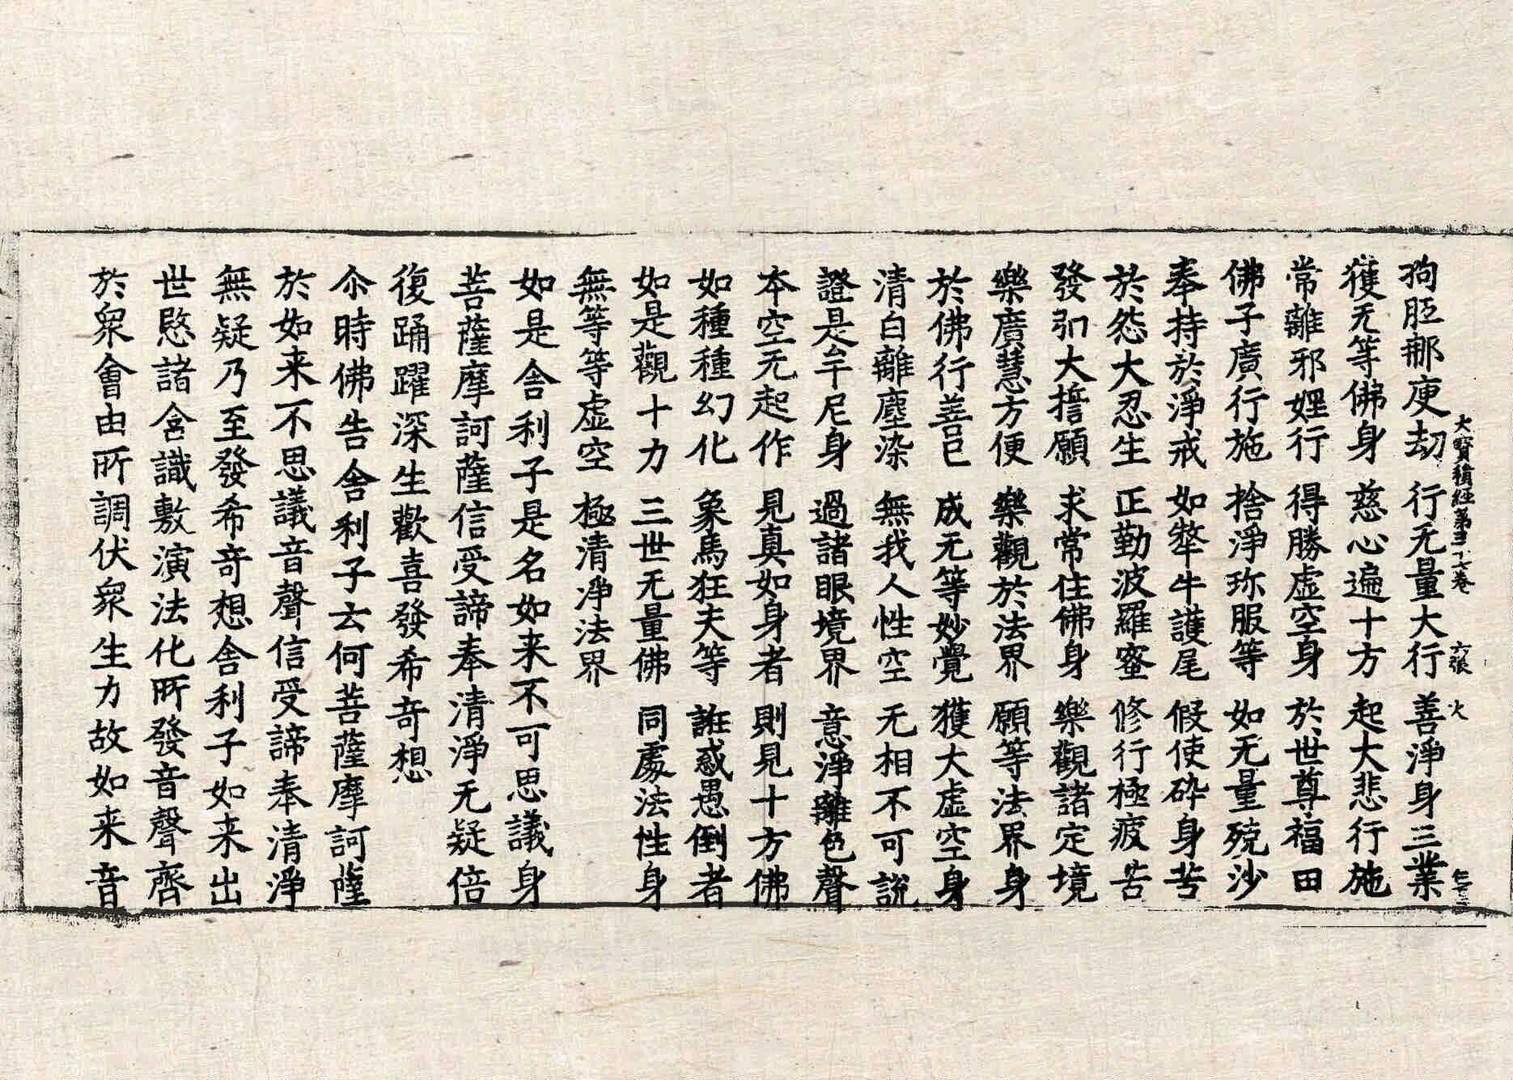 大寳積經第三十七卷 六張 火
狗胝那庾劫 行无量大行 善淨身三業
獲无等佛身 慈心遍十方 起大悲行施
常離邪婬行 得勝虛空身 於世尊福田
佛子廣行施 捨淨珎服等 如无量殑沙
奉持於淨戒 如犛牛護尾 假使碎身苦
於怨大忍生 正勤波羅蜜 修行極疲苦
發弘大誓願 求常住佛身 樂觀諸定境
樂廣慧方便 樂觀於法界 願等法界身
於佛行善已 成无等妙覺 獲大虛空身
清白離塵染 無我人性空 无相不可說
證是牟尼身 過諸眼境界 意淨離色聲
本空无起作 見真如身者 則見十方佛
如種種幻化 象馬狂夫等 誑惑愚倒者
如是觀十力 三世无量佛 同處法性身
無等等虛空 極清淨法界
如是舎利子是名如来不可思議身
菩薩摩訶薩信受諦奉清淨无疑倍
復踊躍深生歡喜發希奇想
尒時佛告舎利子云何菩薩摩訶薩
於如来不思議音聲信受諦奉清淨
無疑乃至發希奇想舎利子如来出
世愍諸含識敷演法化所發音聲齊
於衆會由所調伏衆生力故如来音